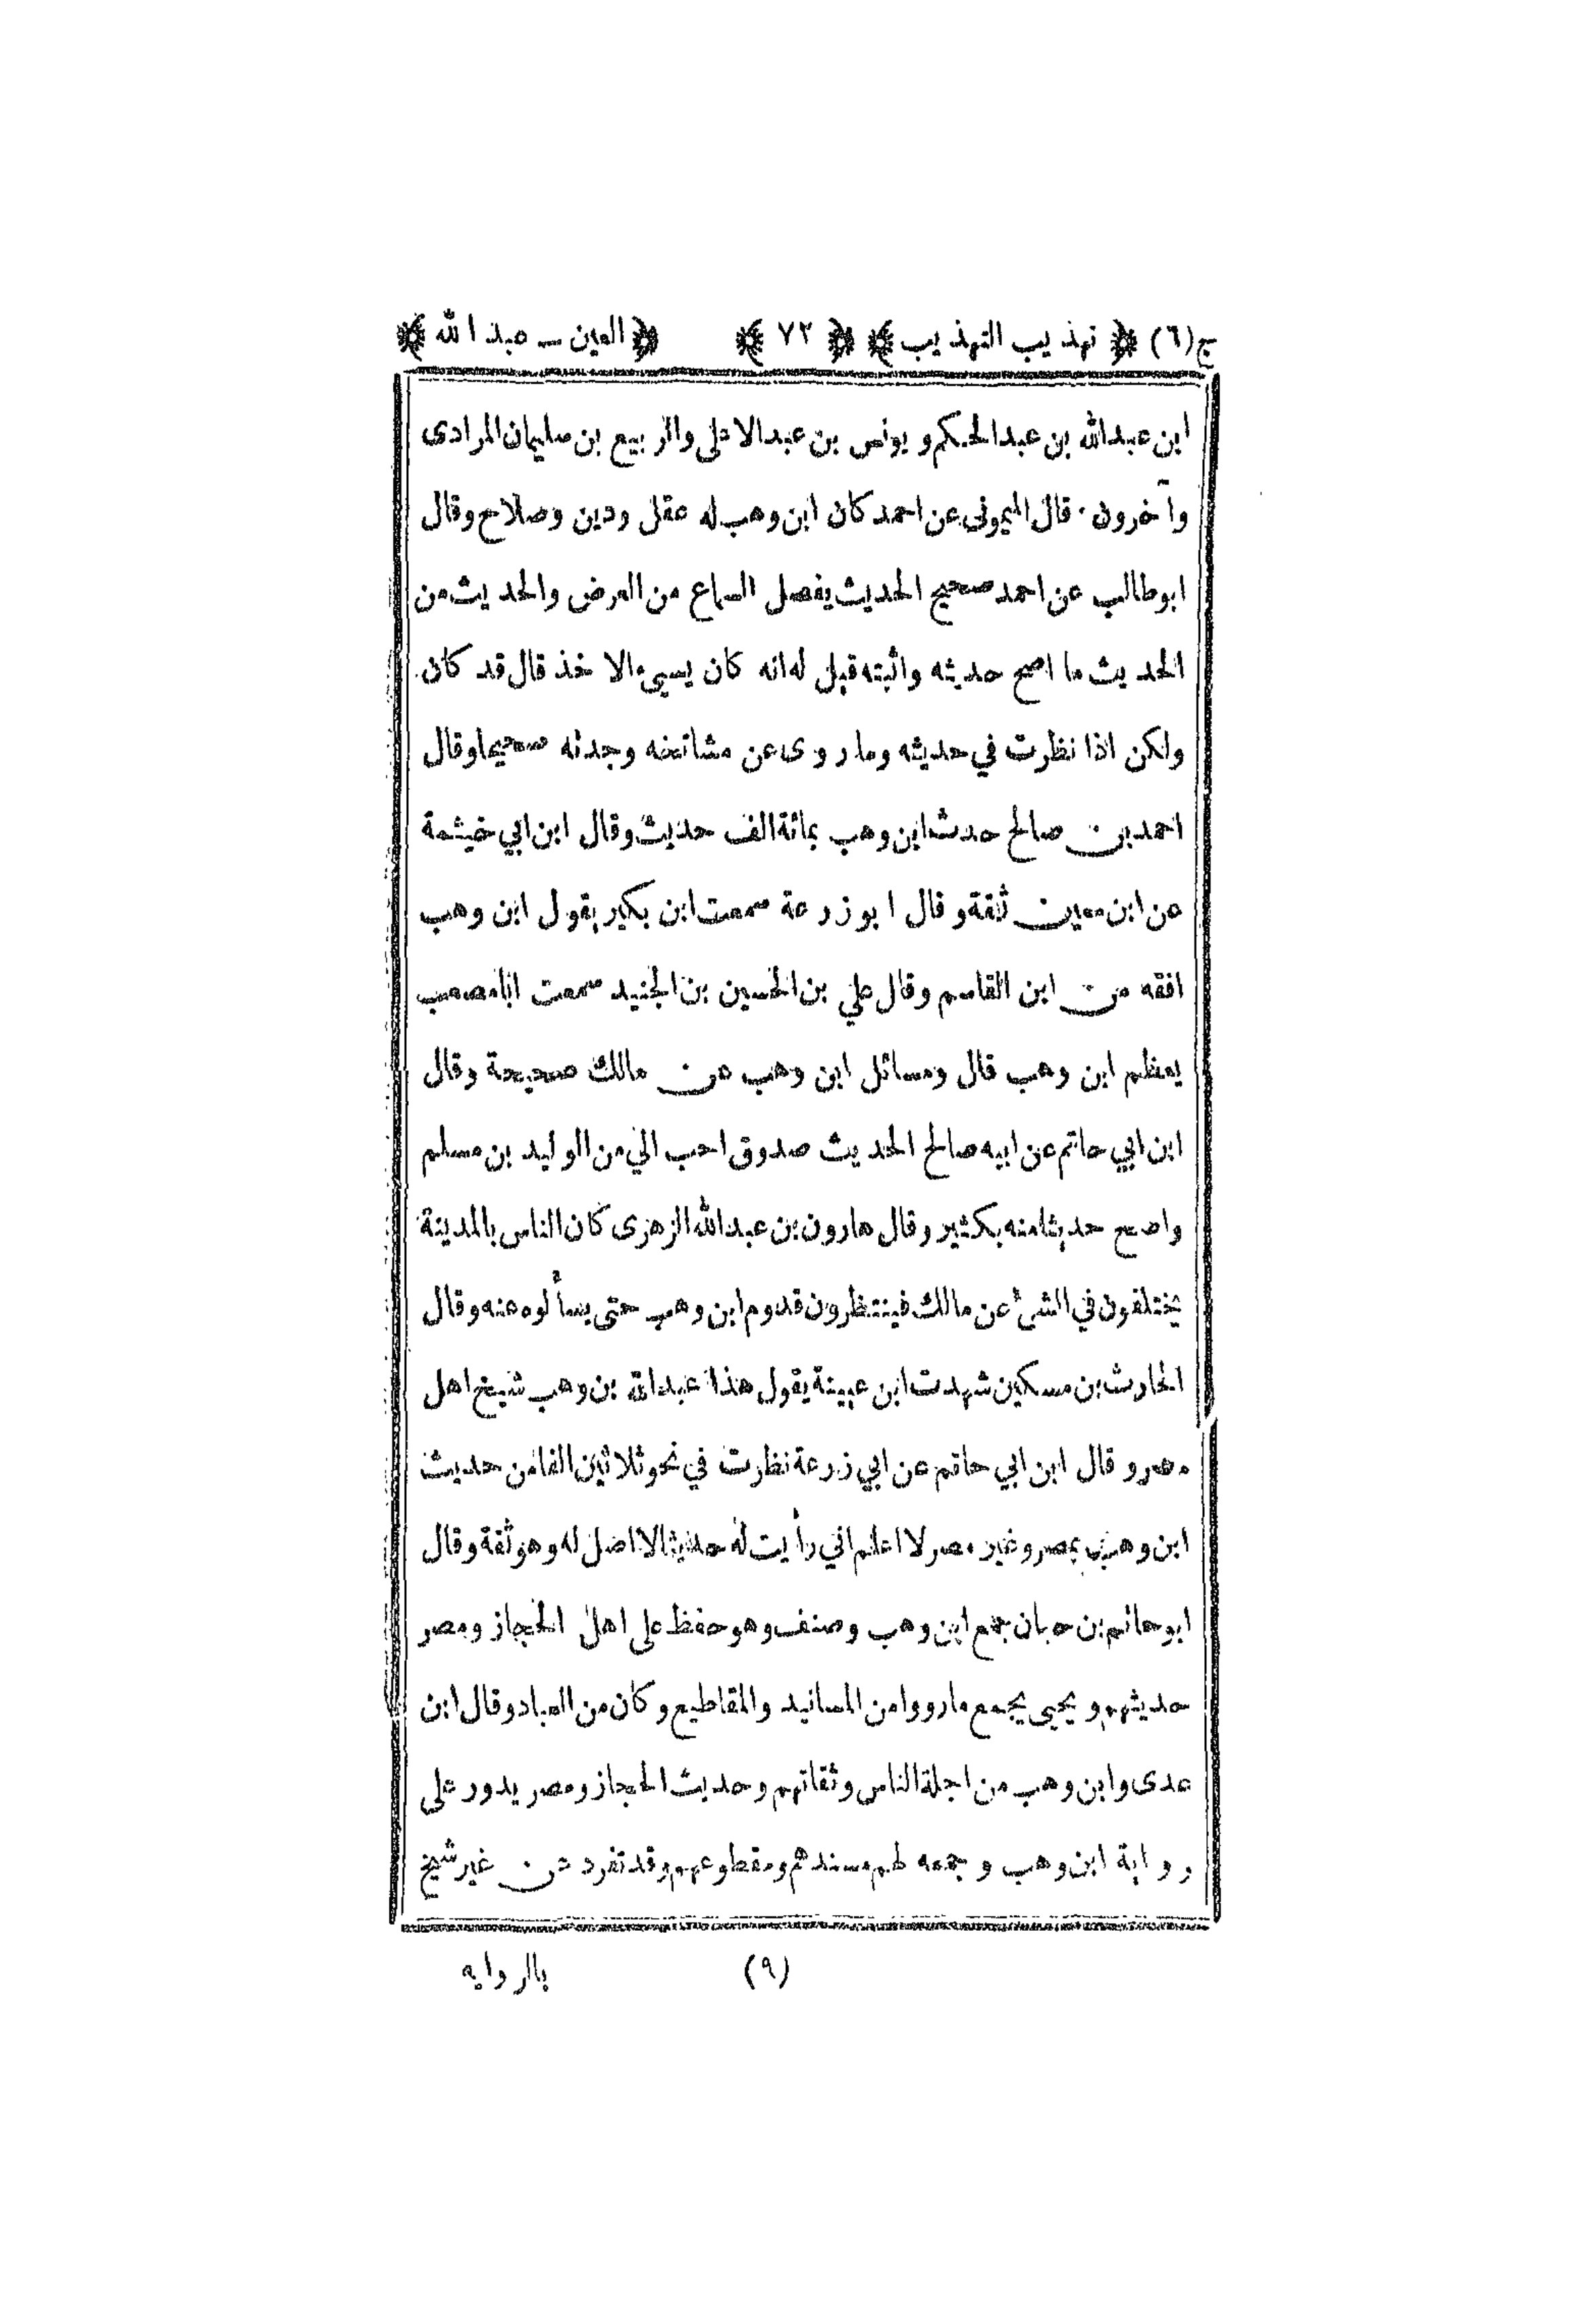 ج(٦) ﴿ تهذيب التهذيب ﴾ ﴿ ٧٢ ﴾ ﴿ العين – عبد الله ﴾
ابن عبدالله بن عبدالحكم ويونس بن عبدالاعلى والربيع بن سليمان المرادى
وآخرون . قال الميموني عن احمد كان ابن وهب له عقل ودين وصلاح وقال
ابوطالب عن احمد صحيح الحديث يفصل السماع من العرض والحديث من
الحديث ما اصح حديثه واثبته قيل له انه كان يسيء الاخذ قال قد كان
ولكن اذا نظرت في حديثه وما روى عن مشائخه وجدته صحيحا وقال
احمد بن صالح حدث ابن وهب بمائة الف حديث وقال ابن ابي خيثمة
عن ابن معين ثقة وقال ابو زرعة سمعت ابن بكير يقول ابن وهب
افقه من ابن القاسم وقال علي بن الحسين بن الجنيد سمعت ابا مصعب
يعظم ابن وهب قال ومسائل ابن وهب عن مالك صحيحة وقال
ابن ابي حاتم عن ابيه صالح الحديث صدوق احب الي من الوليد بن مسلم
واصح حديثا منه بكثير وقال هارون بن عبدالله الزهرى كان الناس بالمدينة
يختلفون في الشئ عن مالك فينتظرون قدوم ابن وهب حتى يسألوه عنه وقال
الحارث بن مسكين شهدت ابن عيينة يقول هذا عبدالله بن وهب شيخ اهل
مصر وقال ابن ابي حاتم عن ابي زرعة نظرت في نحو ثلاثين الفا من حديث
ابن وهب بمصر وغير مصر لا اعلم اني رأيت له حديثا لا اصل له وهو ثقة وقال
ابو حاتم بن حبان جمع ابن وهب وصنف وهو حفظ على اهل الحجاز ومصر
حديثهم ويحيى يجمع ما رووا من المسانيد والمقاطيع وكان من العباد وقال ابن
عدى وابن وهب من اجلة الناس وثقاتهم وحديث الحجاز ومصر يدور على
رواية ابن وهب وجمعه لهم مسندهم ومقطوعهم وقد تفرد عن غير شيخ
(٩) بالروايه